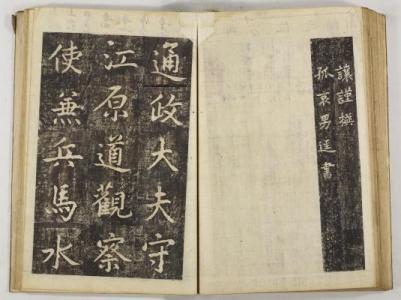 讓謹撰
孤哀男書
通政大夫守
江原道觀察
使兼兵馬水